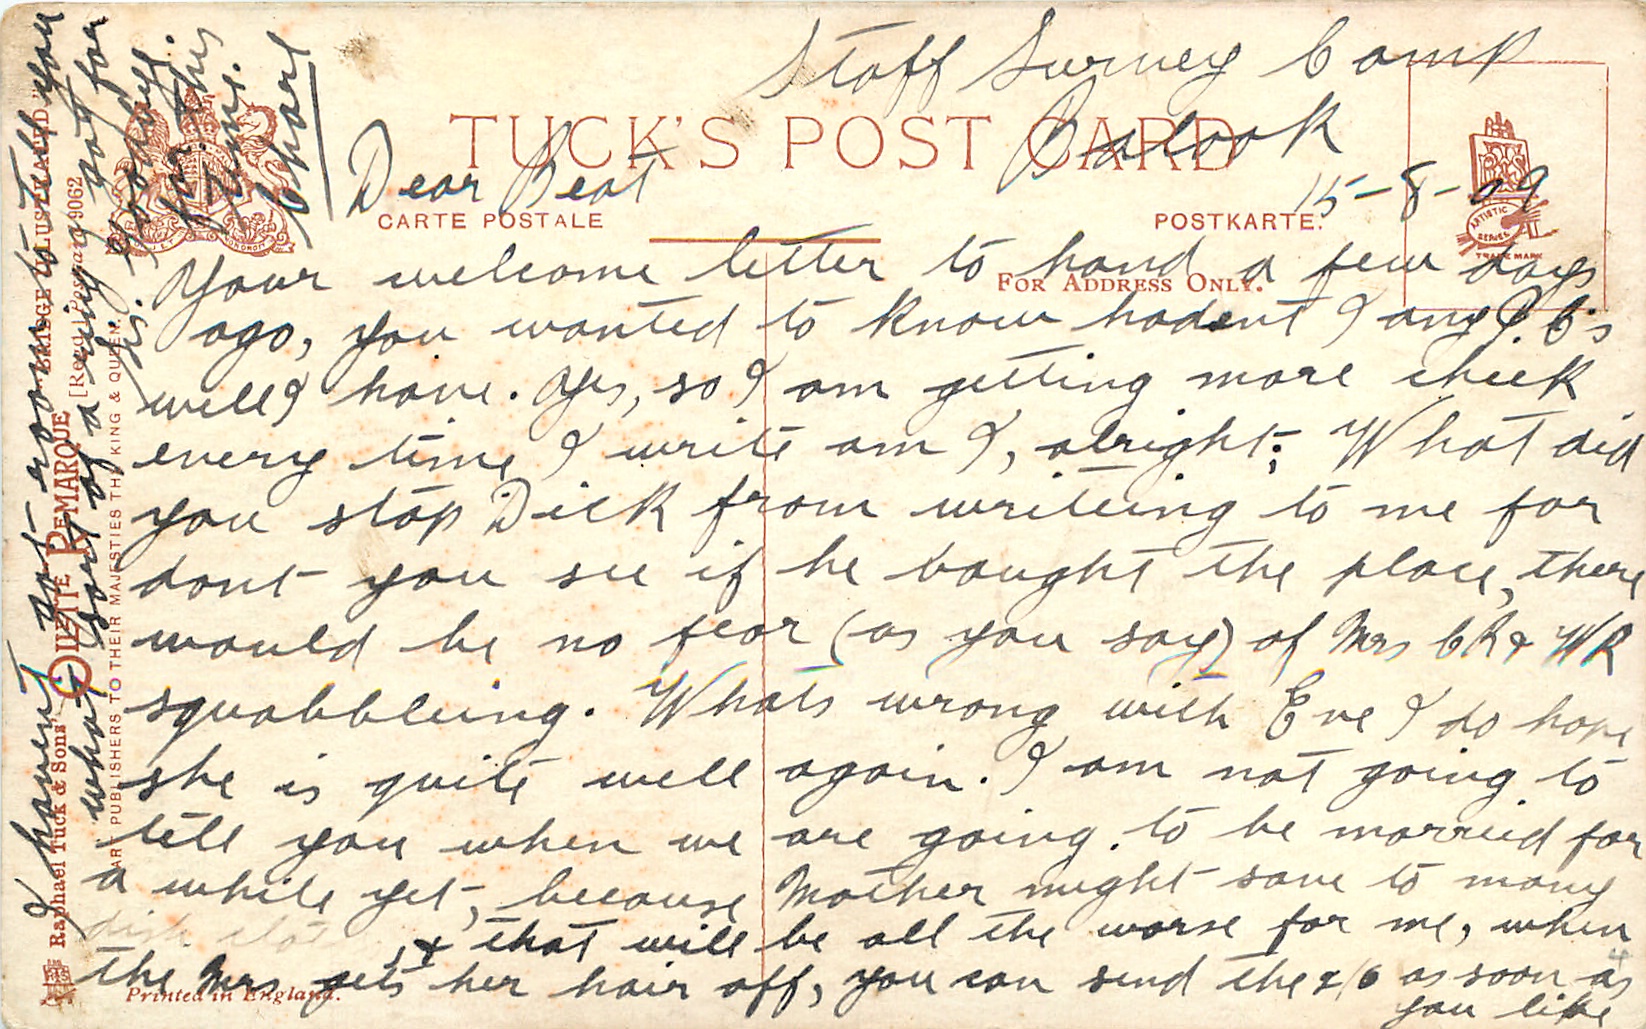 Staff Survey Camp
Balook
15-8-09
TUCK'S POST CARD
CARTE POSTALE
POSTKARTE.
FOR ADDRESS ONLY.
ARTISTIC SERIES
TRADE MARK
Dear Beat
Your welcome letter to hand a few days
ago, you wanted to know hadent I any P.C's
will I have. Yes, so I am getting more cheek
every time I write am I, alright; What did
you stop Dick from writeing to me for
dont you see if he bought the place, there
would be no fear (as you say) of Mrs CR & WR
squabbleing. Whats wrong with Eve I do hope
she is quite well again. I am not going to
tell you when we are going to be married for
a while yet, because Mother might save to many
dish clot & that will be all the worse for me, when
the Mrs gets her hair off, you can send the 2/6 as soon as
you like
I havent got room to tell you
what sort of a ring I got for
his. Goodbye.
for this
time.
Charl
Raphael Tuck & Sons' "OILETTE" REMARQUE
BRIDGE ILLUSTRATED
9062
ART PUBLISHERS TO THEIR MAJESTIES THE KING & QUEEN.
Printed in England.